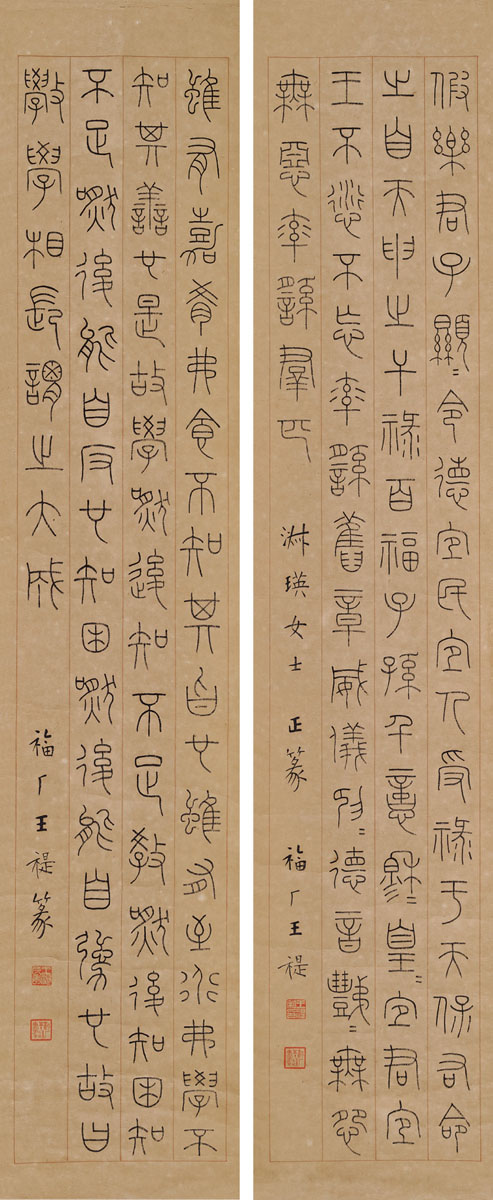 假樂君子顯〻令德宜民宜人受祿于天保右命
之自天申之干祿百福子孫千億穆〻皇〻宜君宜
王不愆不忘率繇舊章威儀抑〻德音豑〻無怨
無惡率繇羣匹
淑瑛女士正篆 福厂王禔
雖有嘉肴弗食不知其旨也雖有至道弗學不
知其善也是故學然後知不足教然後知困知
不足然後能自反也知困然後能自彊也故曰
斆學相長謂之大成
福厂王禔篆